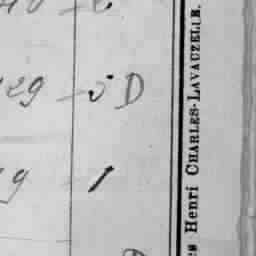 29 - 5 D
9 1
es Henri CHARLES-LAVAUZELLE.